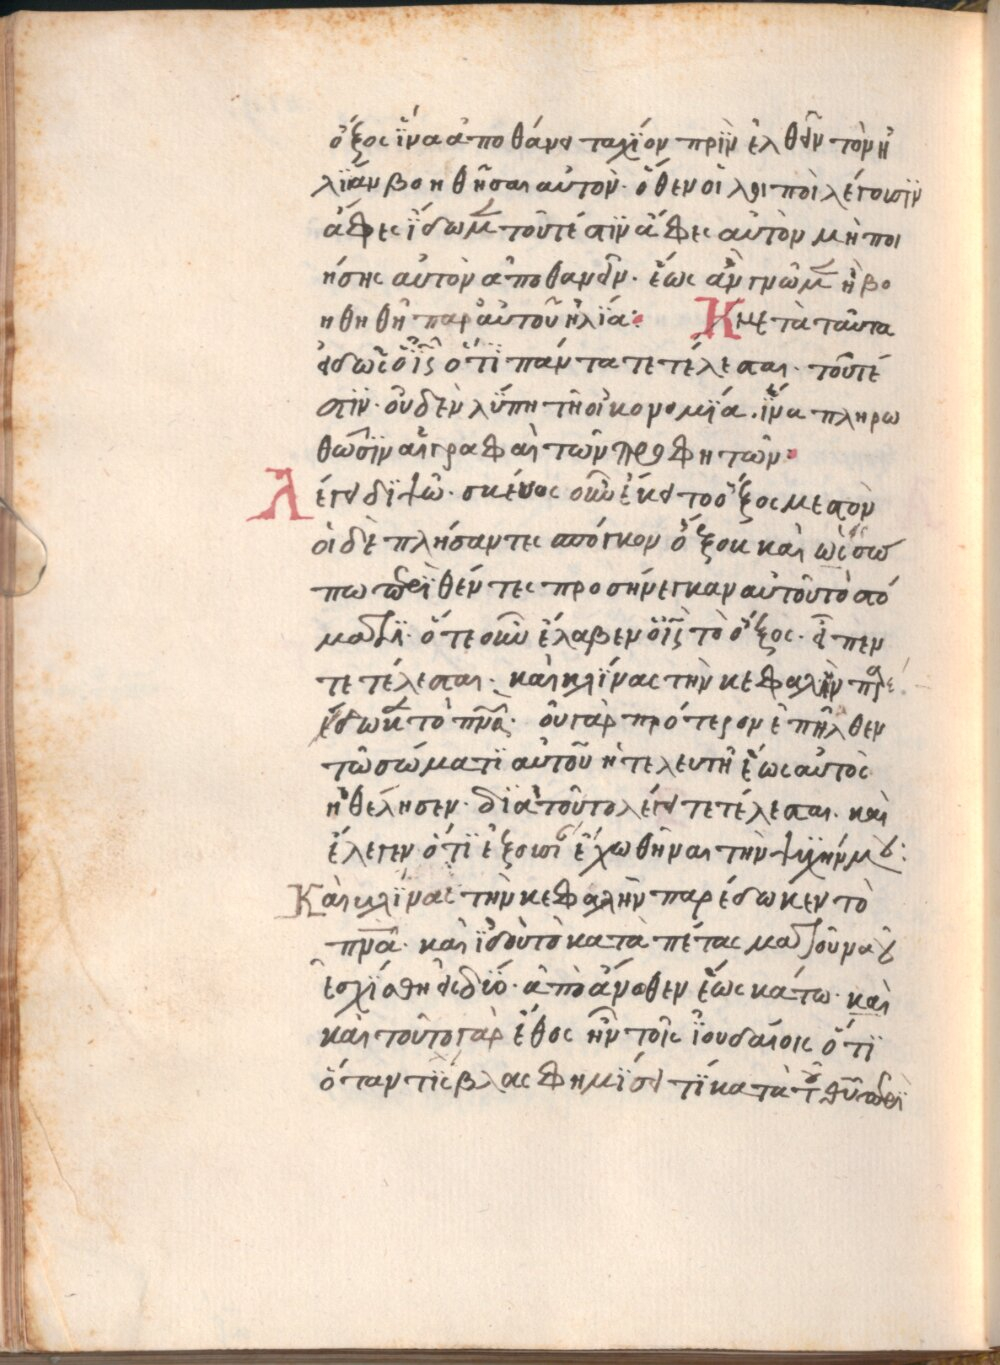 ὄξος ἵ̈να ἀποθάνει ταχϊον πρϊν ἐλθεῖν τὸν ἠ
λϊάν βοηθῆσαι αὐτόν· ὅθεν οἱ λοιποὶ λέγουσϊν
ἄφες ἴ̈δωμ τοῦτέστϊν ἄφες αὐτὸν μὴ ποι
ήσης αὐτὸν ἀποθανεῖν· ἕως ἂν γνῶμ ἢ βο
ηθηθῆ παρ' αὐτοῦ ἠλϊά: Κ μετὰ ταῦτα
εἰδὼς ὁ ἰς ὅτϊ πάντα τετέλεσται· τοῦτέ
στϊν· οὐδὲν λϋπη τῆ οἰκονομϊα· ἵ̈να πληρω
θῶσϊν αἱ γραφαὶ τῶν προφητῶν:
Λέγει διψῶ· σκέυος οὖν ἔκειτο ὄξος μεστὸν
οἱ δὲ πλήσαντες σπόγκον ὄξους καὶ ὑσσώ
πω περϊθέντες προσήνεγκαν αὐτοῦ τὸ στό
ματϊ· ὅτε οὖν ἔλαβεν ὁ ἰς τὸ ὄξος· εἶπεν
τετέλεσται· καὶ κλίνας τὴν κεφαλὴν παρέ
έδωκ τὸ πνα· οὐ γὰρ πρότερον ἐπῆλθεν
τῶ σώματϊ αὐτοῦ ἡ τελευτὴ ἕως αὐτὸς
ἠθέλησεν· δϊὰ τοῦτο λέγει τετέλεσται· καὶ
ἔλεγεν ὅτϊ ἐξουσι ἔχω θῆναι τὴν ψυχήν μου:
Καὶ κλϊνας τὴν κεφαλὴν παρέδωκεν τὸ
πνα· καὶ ἰ̈δοὺ τὸ καταπέτασμα τοῦ ναου
ἐσχϊσθη εἰς δϊο· ἀπὸ ἄνοθεν ἕως κάτω· καὶ
καὶ τοῦτο γὰρ ἔθος ἦν τοῖς ϊουδαίοις ὅτϊ
ὅταν τϊς βλασφημϊσει τϊ κατὰ τοῦ θυ περϊ